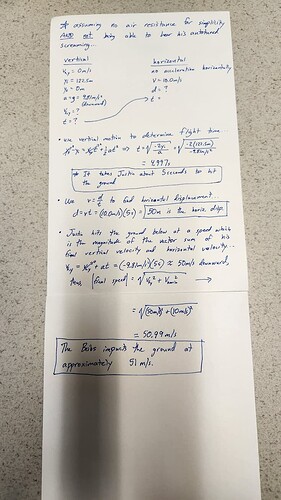 * assuming no air resistance for simplicity
AND not being able to hear his autotuned
screaming...
vertical horizontal
V₀y = 0m/s no acceleration horizontally
yi = 122.5m V = 10.0m/s
yf = 0m d = ?
a = g = -9.81m/s² t =
(downward)
Vfy = ?
t = ?
• use vertical motion to determine flight time...
t = √(-2yi/a) = √(-2(122.5m)/-9.81m/s²)
= 4.997s
* It takes Justin about 5 seconds to hit
the ground
• Use v = d/t to find horizontal displacement...
d = vt = (10.0m/s)(5s) = 50m is the horiz. disp.
• Justin hits the ground below at a speed which
is the magnitude of the vector sum of his
final vertical velocity and horizontal velocity...
Vfy = V₀y + at = (-9.81m/s²)(5s) ≈ 50m/s downward,
|final speed| = √(Vfy² + Vhoriz²) →
= √((50m/s)² + (10m/s)²
= 50.99 m/s
The Biebs impacts the ground at
approximately 51 m/s.